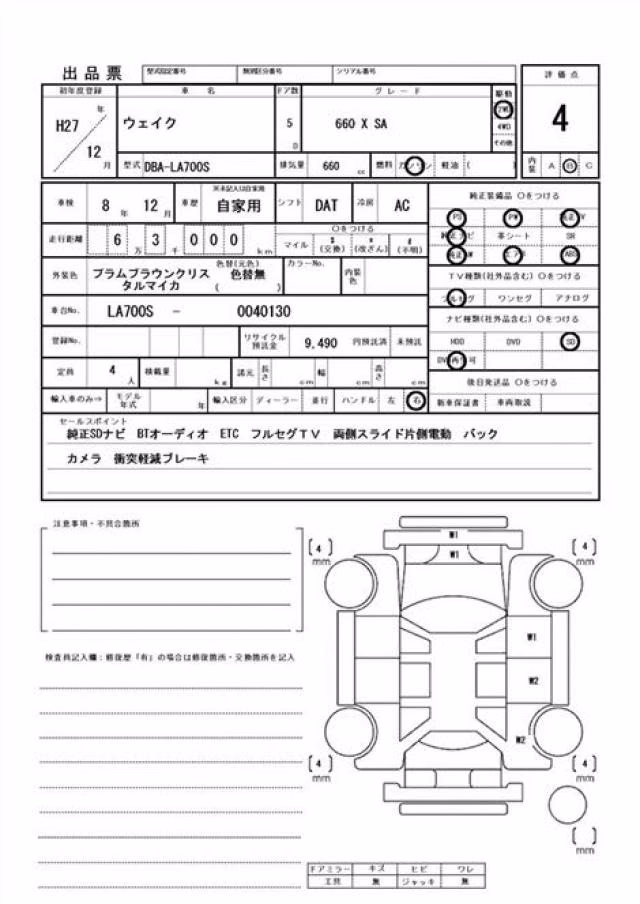 出品票 型式指定番号 類別区分番号 シリアル番号
初年度登録 車名 ドア数 グレード 駆動 評価点
H27 年 12 月 ウェイク 5 D 660 X SA 2WD 4WD その他 4
型式 DBA-LA700S 排気量 660 cc 燃料 ガソリン 軽油 ( ) 内装 A B C
車検 8 年 12 月 車歴 自家用 シフト DAT 冷房 AC
純正装備品 〇をつける
PS PW
革シート SR
ABS
走行距離 6 万 3 千 0 0 0 km 〇をつける マイル $ (交換) * (改ざん) # (不明)
TV種類(社外品含む) 〇をつける
フルセグ ワンセグ アナログ
外装色 プラムブラウンクリスタルマイカ 色替(元色) 色替無 ( ) カラーNo. 内装色
車台No. LA700S - 0040130
ナビ種類(社外品含む) 〇をつける
HDD DVD SD
登録No. リサイクル預託金 9,490 円預託済 未預託
定員 4 人 積載量 kg 諸元 長さ cm 幅 cm 高さ cm
後日発送品 〇をつける
輸入車のみ⇒ モデル年式 年 輸入区分 ディーラー 並行 ハンドル 左 右 新車保証書 車両取説
セールスポイント
純正SDナビ BTオーディオ ETC フルセグTV 両側スライド片側電動 バック
カメラ 衝突軽減ブレーキ
注意事項・不具合箇所
検査員記入欄:修復歴「有」の場合は修復箇所・交換箇所を記入
W1
W1
[4] mm
[4] mm
W1
W2
W2
[4] mm
[4] mm
[ ] mm
ドアミラー キズ ヒビ ワレ
工具 無 ジャッキ 無